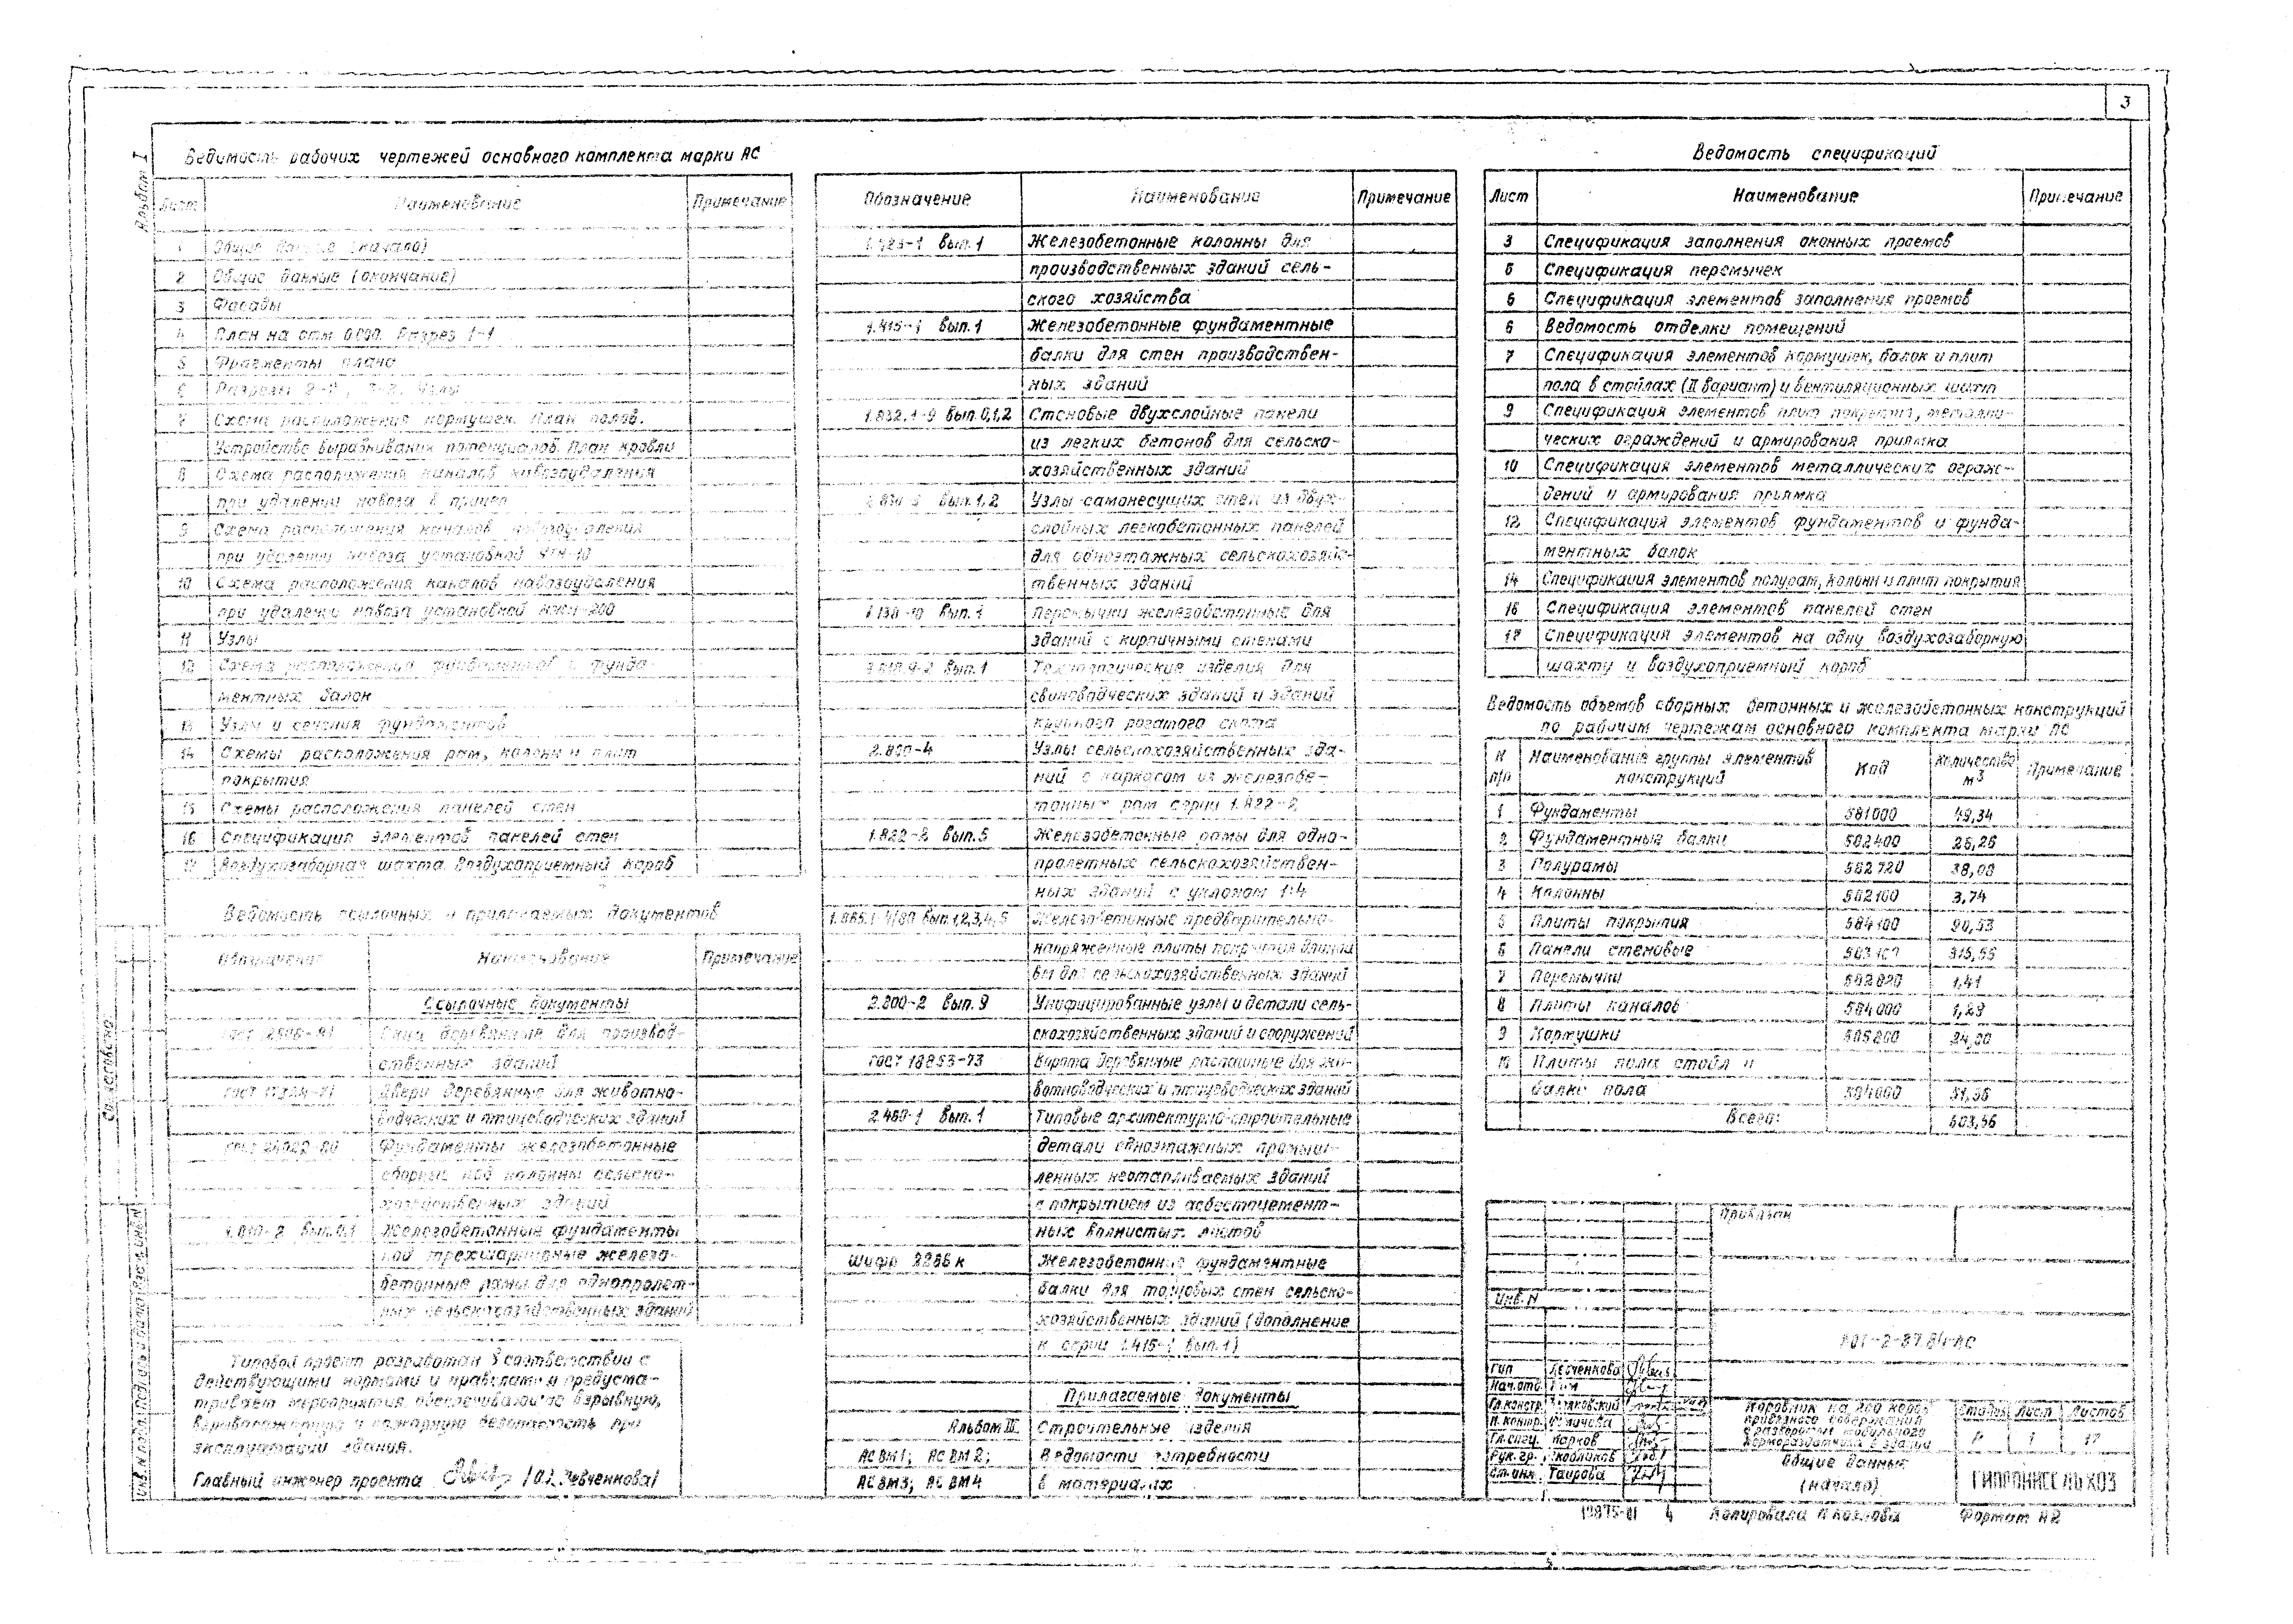 3
Альбом I
Ведомость рабочих чертежей основного комплекта марки АС
Лист Наименование Примечание
1 Общие данные (начало)
2 Общие данные (окончание)
3 Фасады
4 План на отм 0.000. Разрез 1-1
5 Фрагменты плана
6 Разрезы 2-2, 3-3. Узлы
7 Схема расположения кормушек. План полов.
Устройство выравнивания потенциалов. План кровли
8 Схема расположения каналов навозоудаления
при удалении навоза в прицеп
9 Схема расположения каналов навозоудаления
при удалении навоза установкой УТН-10
10 Схема расположения каналов навозоудаления
при удалении навоза установкой
11 Узлы
12 Схема расположения фундаментов и фунда-
ментных балок
13 Узлы и сечения фундаментов
14 Схемы расположения рам, колонн и плит
покрытия
15 Схемы расположения панелей стен
16 Спецификация элементов панелей стен
17 Воздухозаборная шахта. Воздухоприемный короб
Ведомость ссылочных и прилагаемых документов
Обозначение Наименование Примечание
Ссылочные документы
ГОСТ 12506-81 Окна деревянные для производ-
ственных зданий
ГОСТ Двери деревянные для животно-
водческих и птицеводческих зданий
ГОСТ 24022-80 Фундаменты железобетонные
сборные под колонны сельско-
хозяйственных зданий
1.810-2 вып.0,1 Железобетонные фундаменты
под трехшарнирные железо-
бетонные рамы для однопролет-
ных сельскохозяйственных зданий
Типовой проект разработан в соответствии с
действующими нормами и правилами и предуста-
тривает мероприятия обеспечивающие взрывную,
взрывопожарную и пожарную безопасность при
эксплуатации здания.
Главный инженер проекта /О.г. Левченкова/
Обозначение Наименование Примечание
1.823-1 вып.1 Железобетонные колонны для
производственных зданий сель-
ского хозяйства
1.415-1 вып.1 Железобетонные фундаментные
балки для стен производствен-
ных зданий
1.832.1-9 вып.0,1,2 Стеновые двухслойные панели
из легких бетонов для сельско-
хозяйственных зданий
вып.1,2 Узлы самонесущих стен из двух-
слойных легкобетонных панелей
для одноэтажных сельскохозяйс-
твенных зданий
1.138-10 вып.1 Перемычки железобетонные для
зданий с кирпичными стенами
3.818.9-2 вып.1 Технологические изделия для
свиноводческих зданий и зданий
крупного рогатого скота
2.800-4 Узлы сельскохозяйственных зда-
ний с каркасом из железобе-
тонных рам серии 1.822-2
1.822-2 вып.5 Железобетонные рамы для одно-
пролетных сельскохозяйствен-
ных зданий с уклоном 1:4
1.865.1-4/80 вып.1,2,3,4,5 Железобетонные предварительно-
напряженные плиты покрытия длиной
6м для сельскохозяйственных зданий
2.800-2 вып.9 Унифицированные узлы и детали сель-
скохозяйственных зданий и сооружений
ГОСТ 18853-73 Ворота деревянные распашные для жи-
вотноводческих и птицеводческих зданий
2.460-1 вып.1 Типовые архитектурно-строительные
детали одноэтажных промыш-
ленных неотапливаемых зданий
с покрытием из асбестоцемент-
ных волнистых листов
Шифр 2286к Железобетонные фундаментные
балки для торцовых стен сельско-
хозяйственных зданий (дополнение
к серии 1.415-1 вып.1)
Прилагаемые документы
Альбом III Строительные изделия
АС ВМ1; АС ВМ2; Ведомости потребности
АС ВМ3; АС ВМ4 в материалах
Ведомость спецификаций
Лист Наименование Примечание
3 Спецификация заполнения оконных проемов
6 Спецификация перемычек
6 Спецификация элементов заполнения проемов
6 Ведомость отделки помещений
7 Спецификация элементов кормушек, балок и плит
пола в стойлах (II вариант) и вентиляционных шахт
9 Спецификация элементов плит покрытия, металли-
ческих ограждений и армирования приямка
10 Спецификация элементов металлических ограж-
дений и армирования приямка
12 Спецификация элементов фундаментов и фунда-
ментных балок
14 Спецификация элементов полурам, колонн и плит покрытия
16 Спецификация элементов панелей стен
17 Спецификация элементов на одну воздухозаборную
шахту и воздухоприемный короб
Ведомость объемов сборных бетонных и железобетонных конструкций
по рабочим чертежам основного комплекта марки АС
N п/п Наименование группы элементов конструкций Код Количество м3 Примечание
1 Фундаменты 581000 49,34
2 Фундаментные балки 582400 26,26
3 Полурамы 582720 38,00
4 Колонны 582100 3,74
5 Плиты покрытия 584100 90,53
6 Панели стеновые 315,55
7 Перемычки 582820 1,41
8 Плиты каналов 584000 1,29
9 Кормушки 585800 24,00
10 Плиты пола стойл и
балки пола 584000
Всего: 603,56
Привязан
Инв. N
801-2-87.84-АС
ГИП Левченкова
Нач.отд.
Гл.констр.
Н. контр. Фомичова
Гл.спец. Карков
Рук. гр.
Ст.инж. Таирова
Коровник на 200 коров
привязного содержания
с разворотом мобильного
кормораздатчика в здании
Стадия Лист Листов
Р 1 17
Общие данные
(начало)
ГИПРОНИСЕЛЬХОЗ
19875-01 4 Копировала Козлова Формат А2
Согласовано:
Инв. N подл. Подпись и дата Взам. инв. N